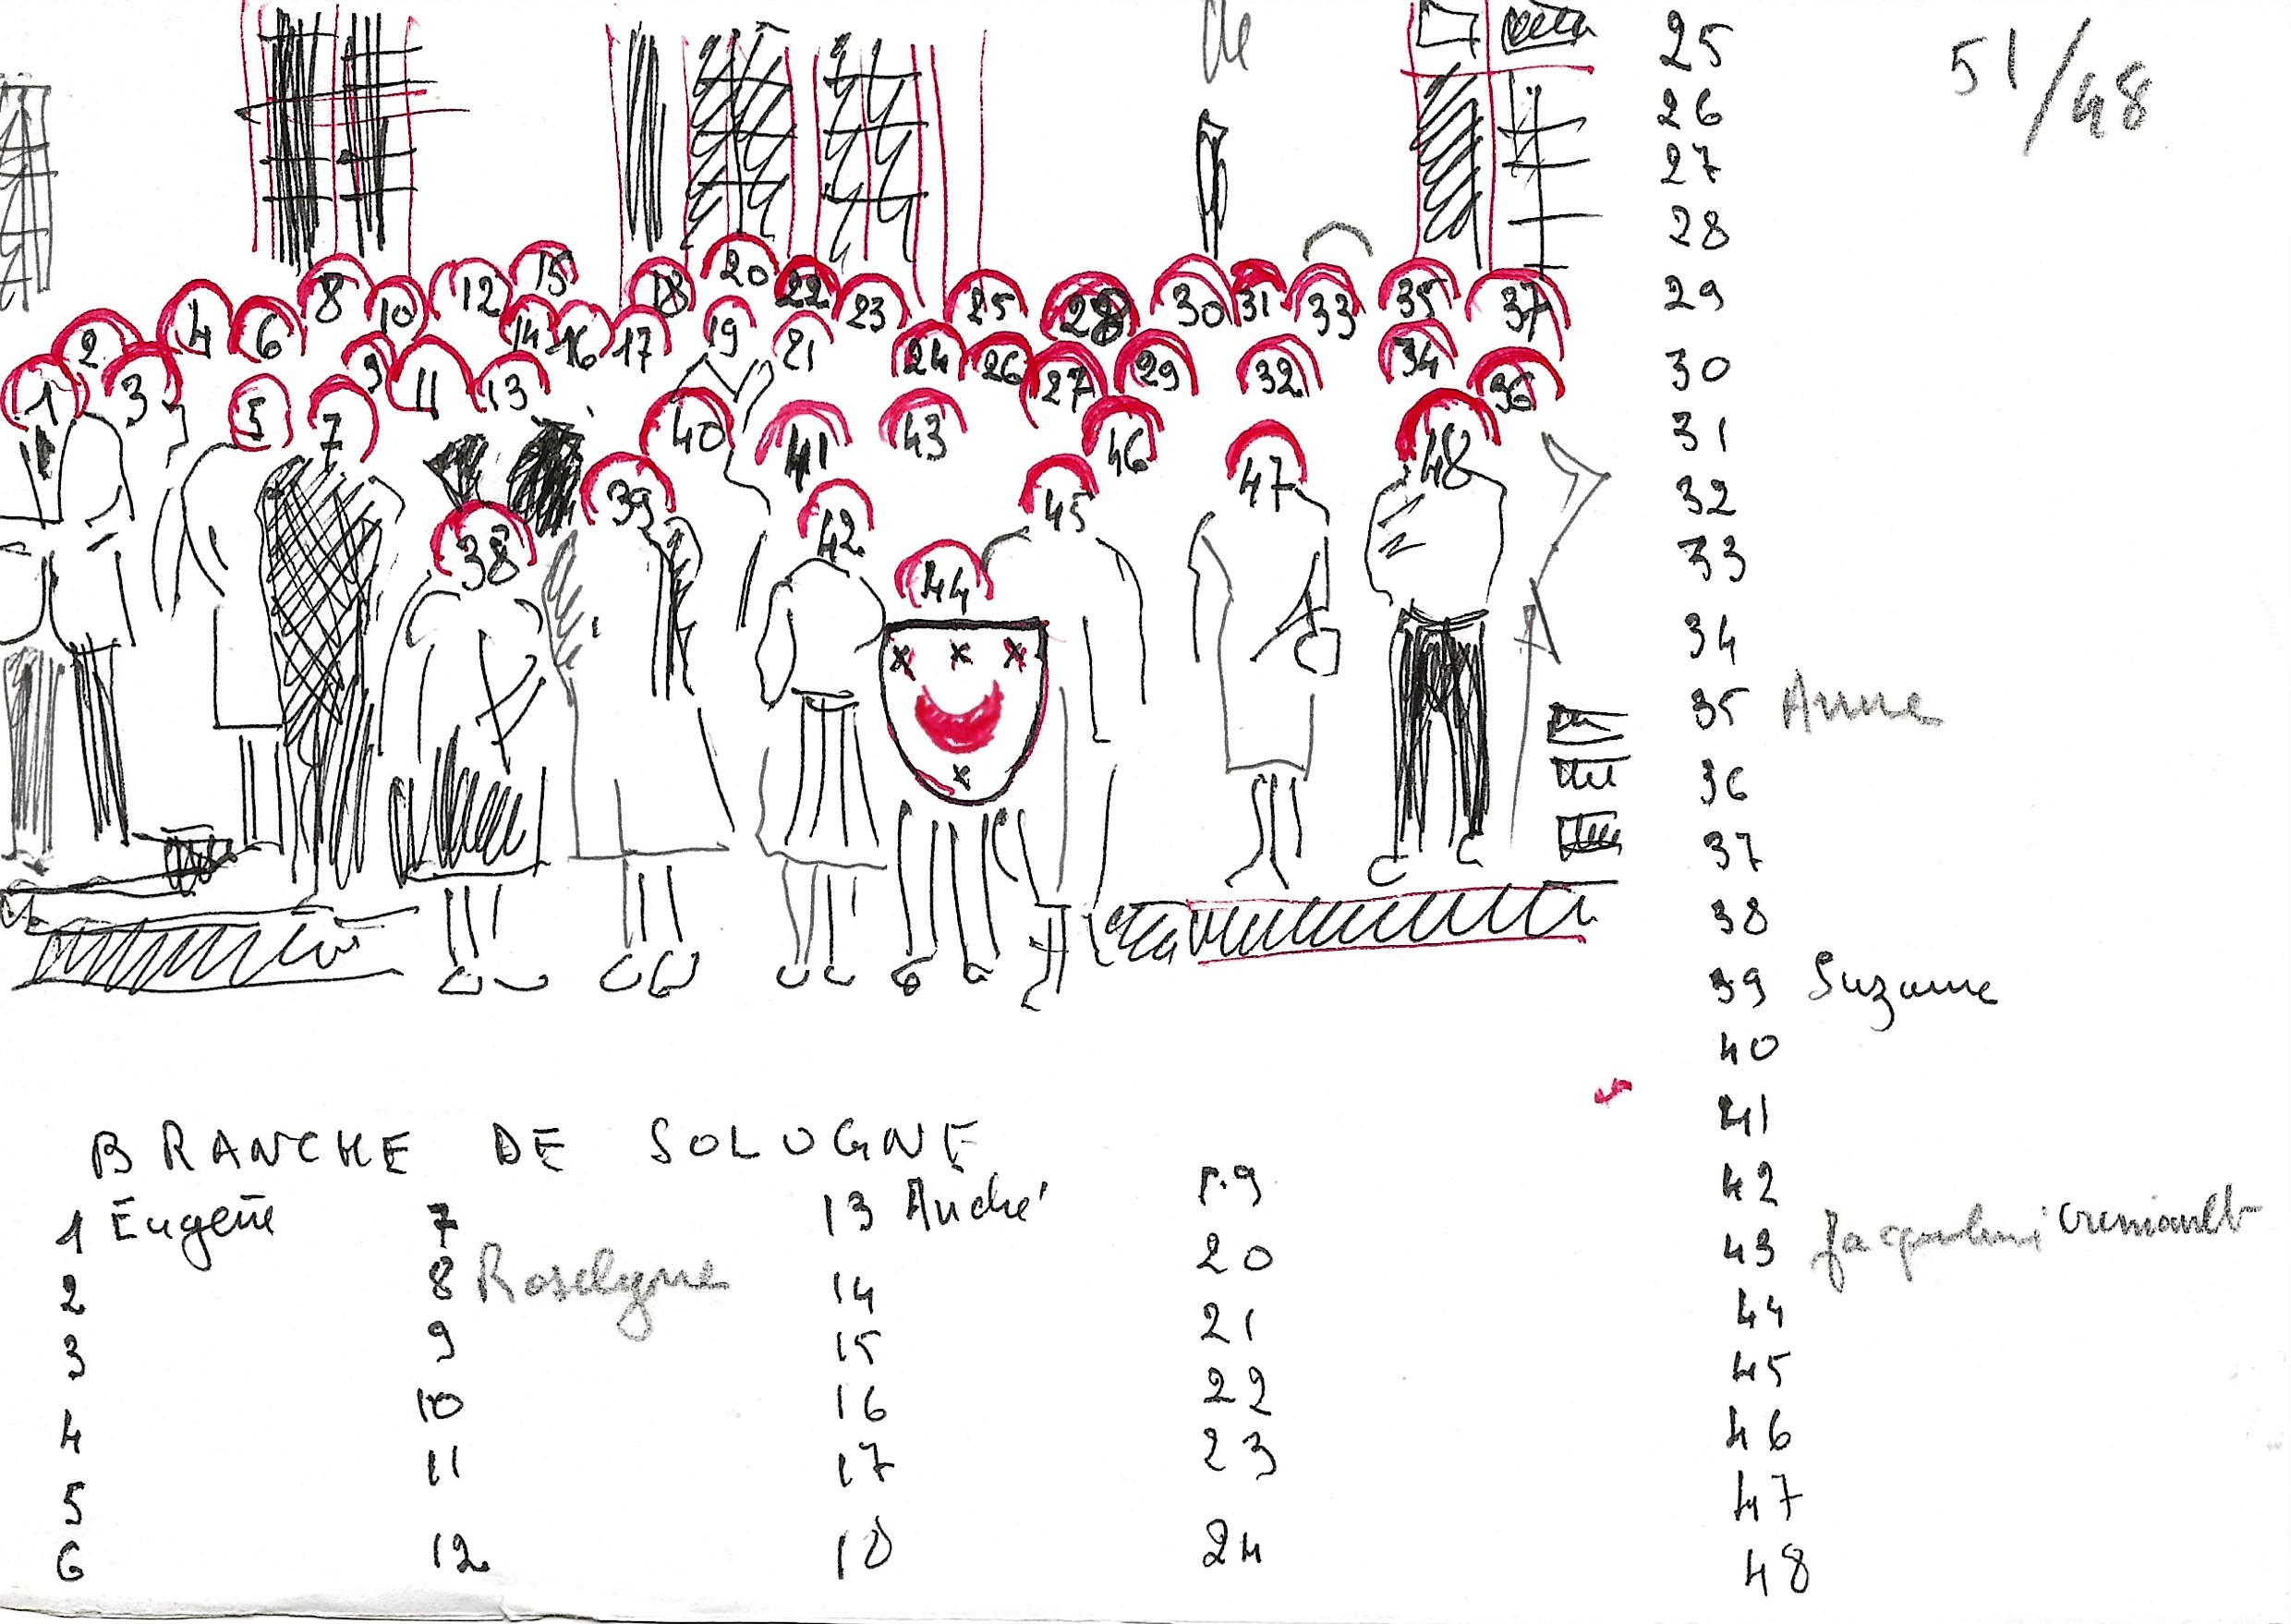 51/48
20
15
8
12
18
22
30
31
35
4
10
23
25
28
33
37
6
14
16
17
19
21
2
9
24
26
34
1
3
11
13
27
29
32
36
5
7
40
41
43
46
48
39
47
38
42
45
44
BRANCHE DE SOLOGNE
1 Eugène
2
3
4
5
6
7
8 Roselyne
9
10
11
12
13 André
14
15
16
17
18
19
20
21
22
23
24
25
26
27
28
29
30
31
32
33
34
35 Anne
36
37
38
39 Suzanne
40
41
42
43 Jacqueline
44
45
46
47
48